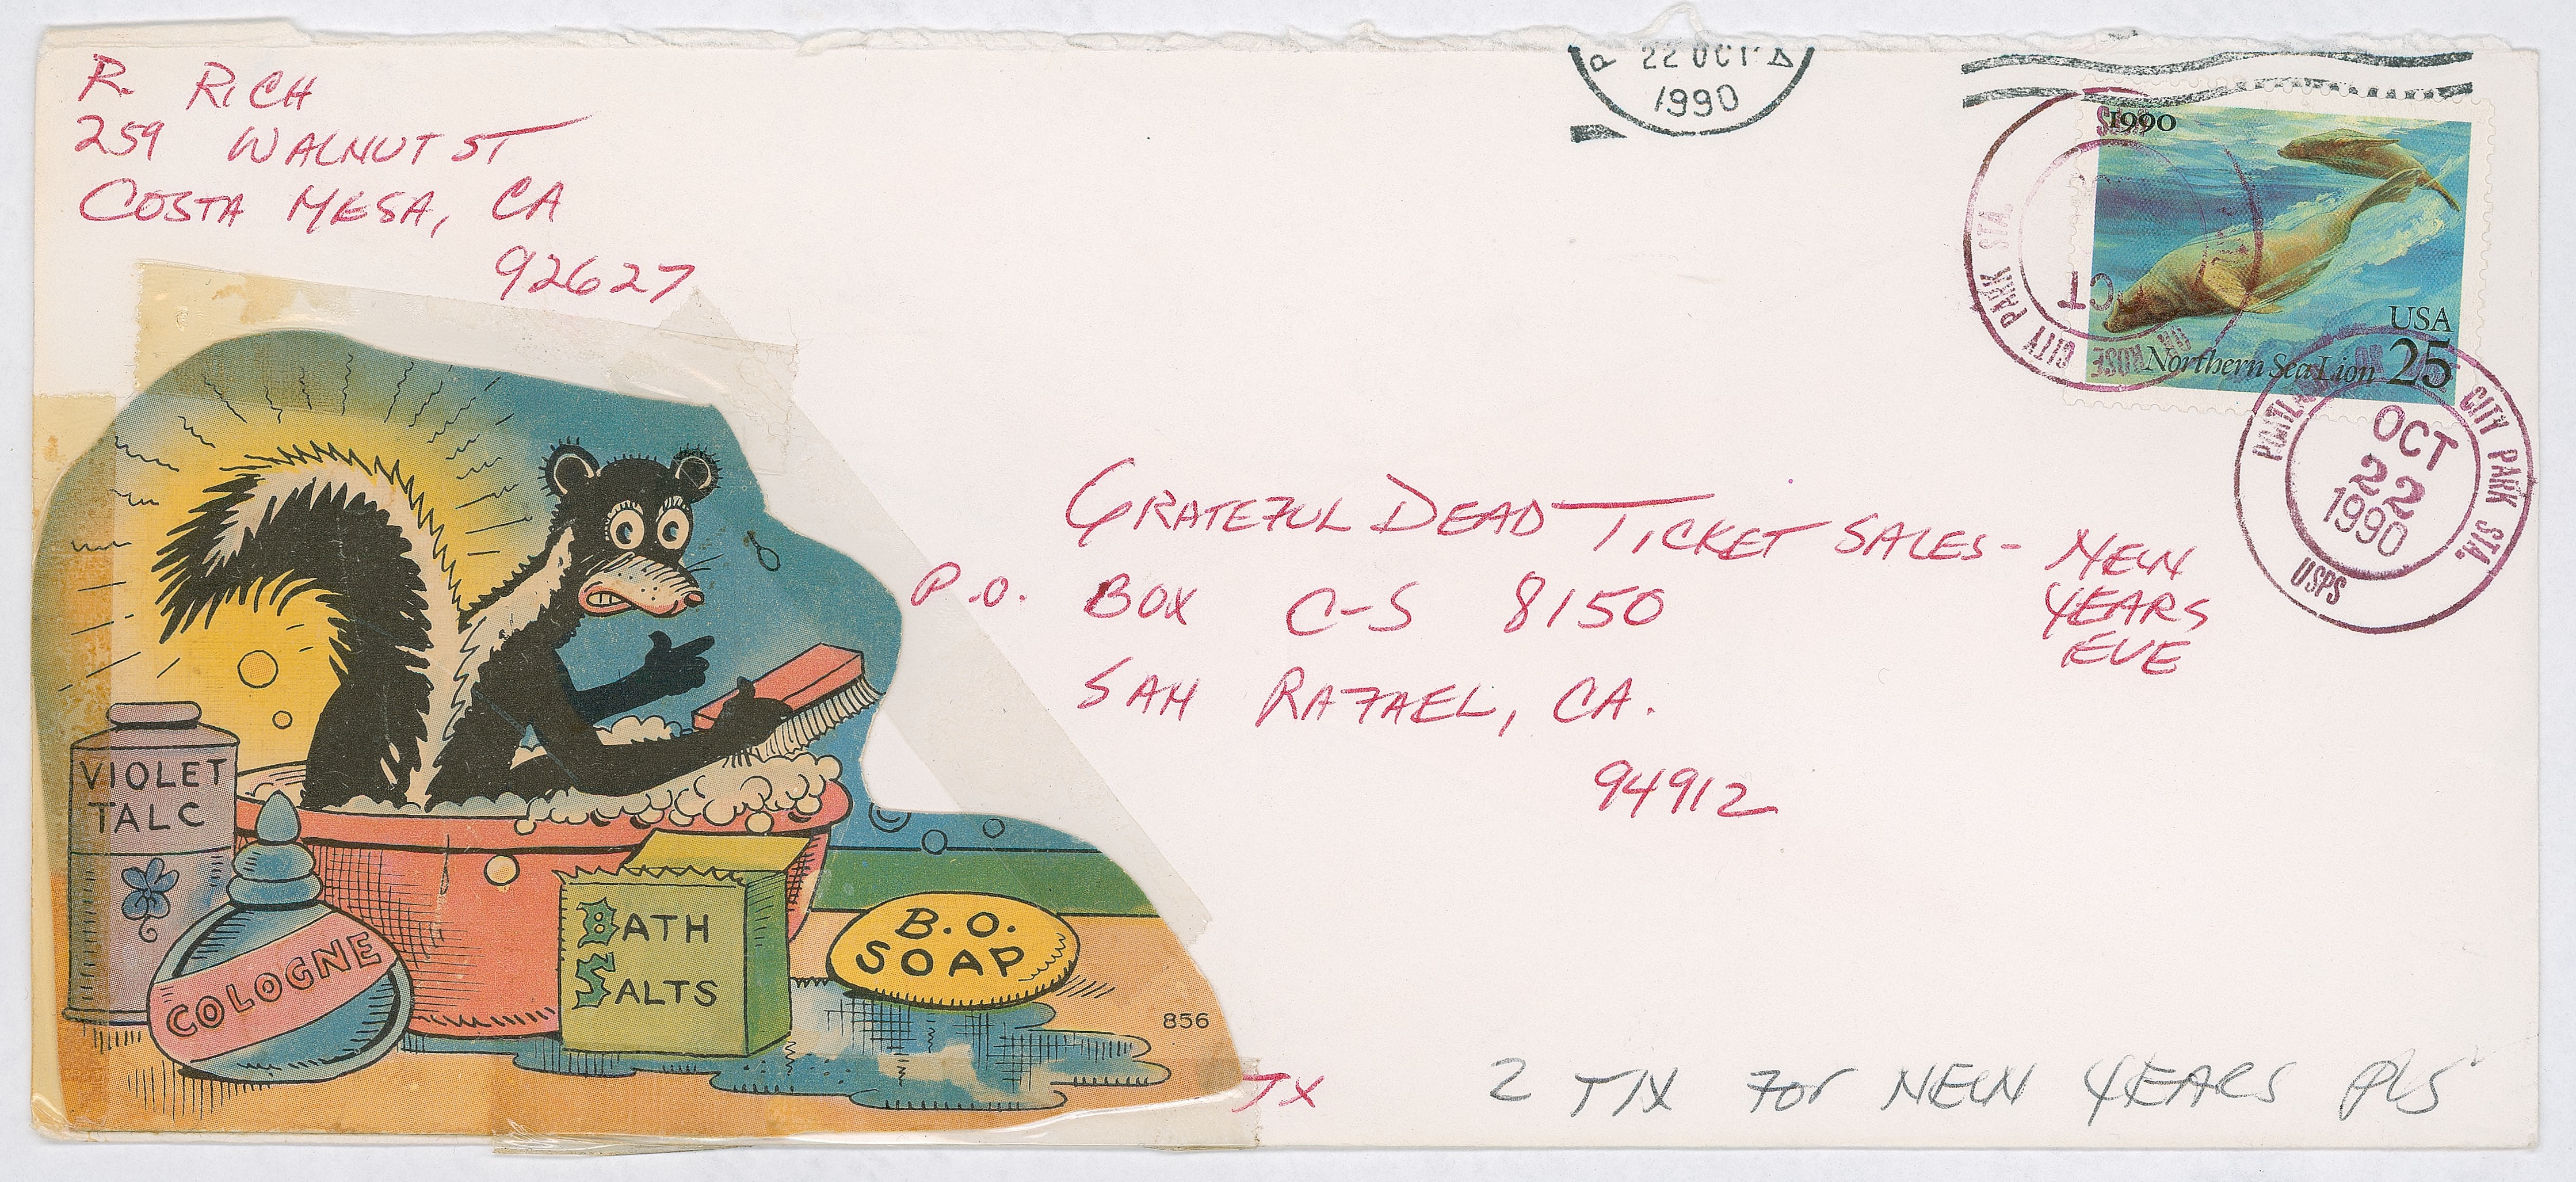 R. RICH
259 WALNUT ST
COSTA MESA, CA
92627
22 OCT
1990
1990
USA
Northern Sea Lion 25
CITY PARK STA.
OCT
PORTLAND OR CITY PARK STA.
OCT
22
1990
USPS
GRATEFUL DEAD TICKET SALES- NEW
YEARS
EVE
P.O. BOX C-S 8150
SAN RAFAEL, CA.
94912
VIOLET
TALC
COLOGNE
BATH
SALTS
B.O.
SOAP
856
TX
2 TIX FOR NEW YEARS PLS